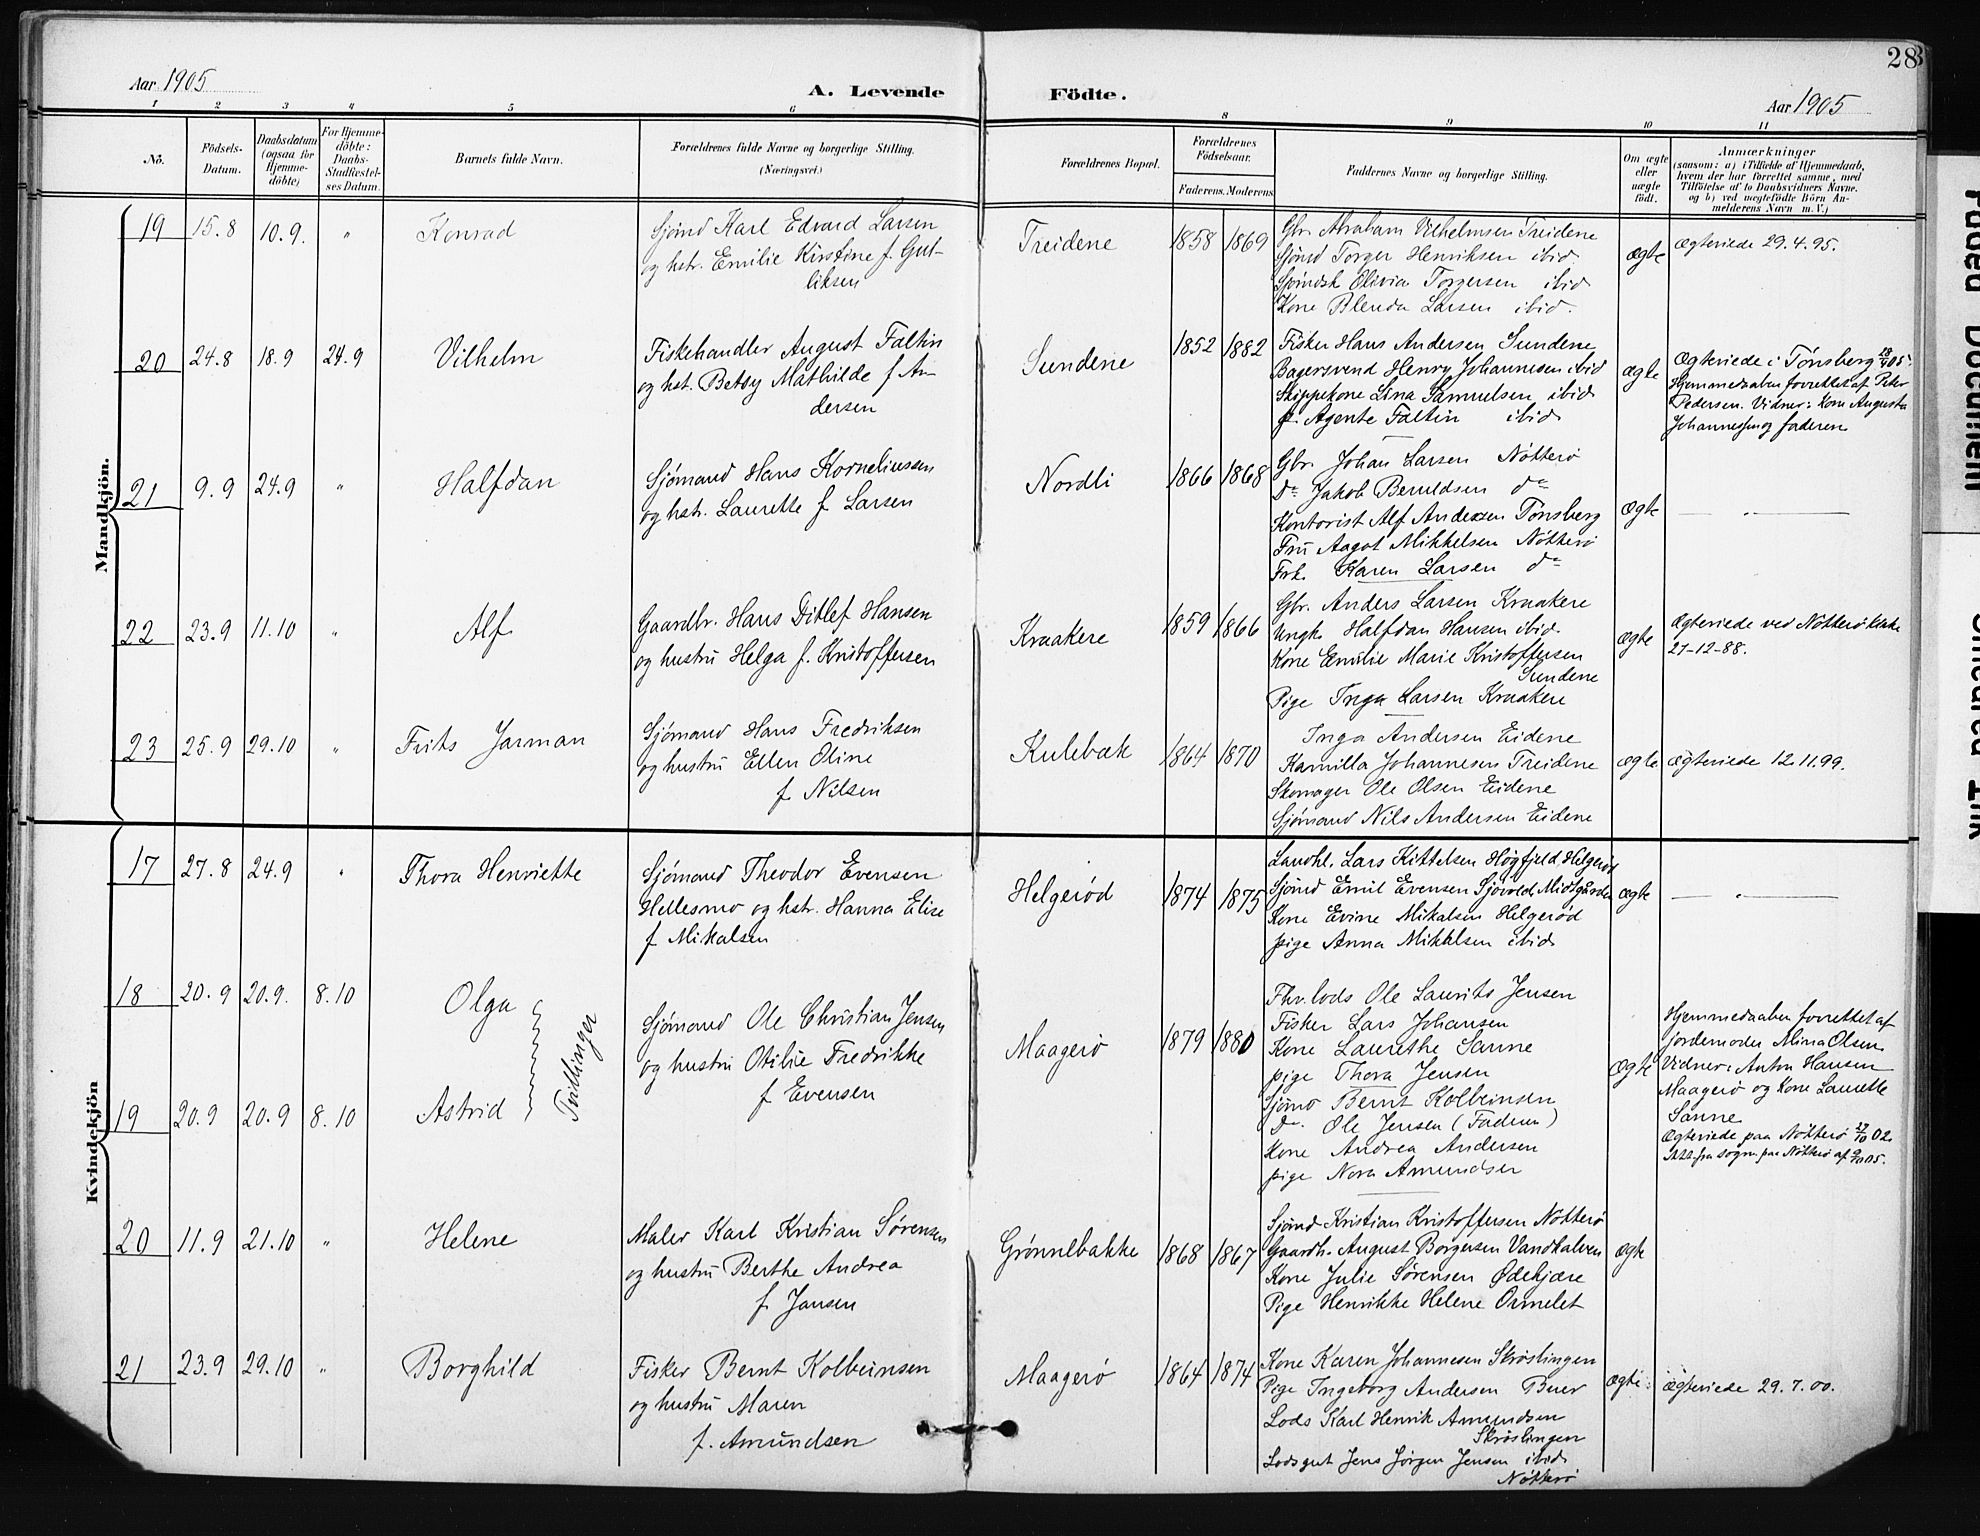 28
Aar 1905
A. Levende Födte.
Aar 1905
1 2 3 4 5 6 8 9 10 11
No.
Födsels-Datum.
Daabsdatum (ogsaa for Hjemmedöbte)
For Hjemmedöbte: Daabs-Stadfæstelses Datum.
Barnets fulde Navn.
Forældrenes fulde Navne og borgerlige Stilling.
(Næringsvei.)
Forældrenes Bopæl.
Forældrenes Födselsaar.
Faderens. Moderens.
Faddernes Navne og borgerlige Stilling.
Om ægte eller uægte født.
Anmærkninger
(saasom: a) i Tilfælde af Hjemmedaab,
hvem der har forrettet samme, med
Tilföielse af to Daabsvidners Navne.
og b) ved uægtefödte Börn An-
melderens Navn m. V.)
Mandkjön.
19 15.8 10.9. " Konrad
Sjömd Karl Edvard Larsen
og hstr. Emilie Kirstine f. Gul-
liksen
Treidene 1858 1869
Gbr. Abraham Vilhelmsen Treidene
Sjömd Torger Henriksen ibid.
Sjömdsk Olivia Torgersen ibid
Kone Blenda Larsen ibid.
ægte
Ægteviede 29.4.95.
20 24.8 18.9 24.9 Vilhelm
Fiskehandler August Faltin
og hst. Betsy Mathilde f An-
dersen
Sundene 1852 1882
Fisker Hans Andersen Sundene
Bagersvend Henry Johannesen ibid
Skippekone Lina Samuelsen ibid
p. Agente Faltin ibid
ægte
Ægteviede i Tønsberg
Hjemmedaaben forrettet af Peter
Pedersen. Vidner: Kone Augusta
Johannessen og faderen
21 9.9 24.9 " Halfdan
Sjømand Hans Korneliussen
og hstr. Laurette f Larsen
Nordli 1866 1868
Gbr. Johan Larsen Nötterö
do Jakob Beruldsen do
Kontorist Alf Andersen Tønsberg
Fru Aagot Mikkelsen Nötterö
Frk. Karen Larsen do
ægte
"
22 23.9 11.10 " Alf
Gaardbr. Hans Ditlef Hansen
og hustru Helga f. Kristoffersen
Kraakere 1859 1866
Gbr. Anders Larsen Kraakere
Ungk. Halfdan Hansen ibid.
Kone Emilie Marie Kristoffersen
Sundene
Pige Inga Larsen Kraakere
ægte
Ægteviede ved Nötterö Kirke
27-12-88.
23 25.9 29.10 " Frits Jarman
Sjømand Hans Fredriksen
og hustru Ellen Oline
f. Nilsen
Kulebæk 1864 1870
Inga Andersen Eidene
Kamilla Johannesen Treidene
Skomager Ole Olsen Eidene
Sjømand Nils Andersen Eidene
ægte
Ægteviede 12.11.99.
Kvindekjön
17 27.8 24.9 " Thora Henriette
Sjømand Theodor Evensen
Hellesmo og hstr. Hanna Elise
f Mikalsen
Helgerød 1874 1875
Landhl. Lars Kittelsen Høgfjeld, Helgerød
Sjömd Emil Evensen Sjøvold Midtgården
Kone Evine Mikalsen Helgerød
pige Anna Mikkelsen ibid
ægte
"
18 20.9 20.9. 8.10 Olga
19 20.9 20.9 8.10 Astrid
Tvillinger
Sjømand Ole Christian Jensen
og hustru Otilie Fredrikke
f Evensen
Maagerö 1879 1880
Fhv. lods Ole Laurits Jensen
Fisker Lars Johansen
Kone Laurethe Sanne
pige Thora Jensen
Sjömd Bernt Kolbeinsen
do. Ole Jensen (Faderen)
Kone Andrea Andersen
pige Nora Amundsen
ægte
Hjemmedaaben forrettet af
jordemoder Mina Olsen.
Vidner: Anton Hansen
Maagerö og Kone Laurette
Sanne
Ægteviede paa Nötterö 27/10 02.
20 11.9 21.10 " Helene
Maler Karl Kristian Sørensen
og hustru Berthe Andrea
f. Jansen
Grønnebakke 1868 1867
Sjömd Kristian Kristoffersen Nötterö
Gaardb. August Borgersen Vandkalven
Kone Julie Sørensen Ødekjære
Pige Henrikke Helene Ormelet
ægte
21 23.9 29.10 " Borghild
Fisker Bernt Kolbeinsen
og hustru Maren
f. Amundsen
Maagerö 1864 1874
Kone Karen Johannesen Skrøslingen
Pige Ingeborg Andersen Buer
Lods Karl Henrik Amundsen
Skrøslingen
Lodsgut Jens Jørgen Jensen ibid
Nötterö
ægte
Ægteviede 29.7.00.